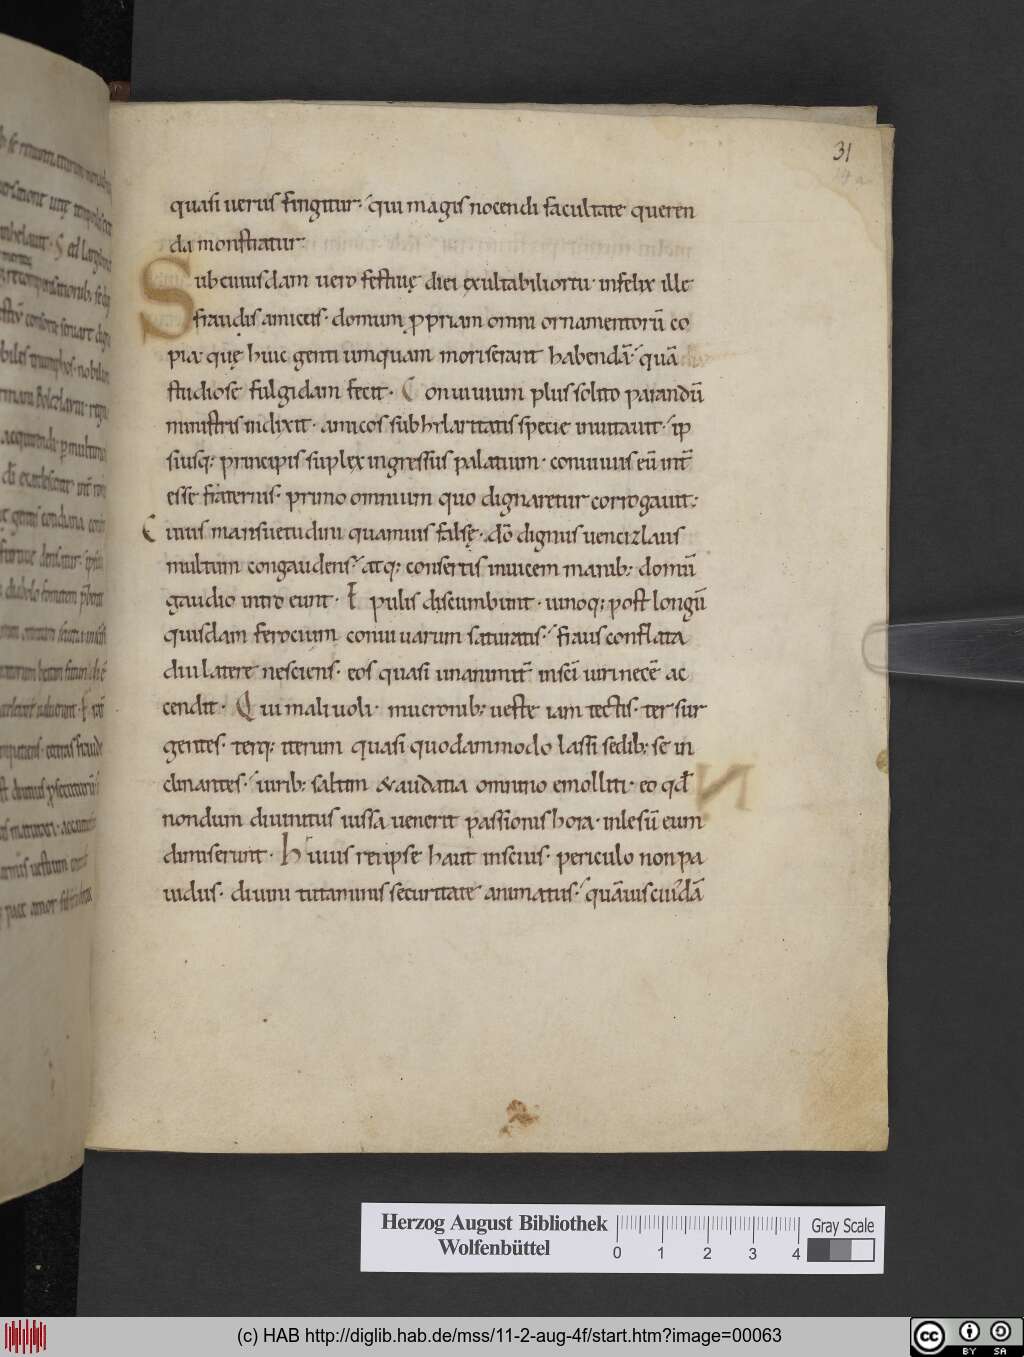 31
quasi uerus fingitur· qui magis nocendi facultate queren
da monstratur
Sub cuiusdam uero festiuę diei exultabili ortu· infelix ille
fraudis amicus· domum ꝓpriam omni ornamentorū co
pia quę huic genti umquam moris erant habendā· quā
studiose fulgidam fecit· Conuiuium plus solito parandū
ministris indixit· amicos sub hilaritatis specie inuitauit· ip
siusq; principis suplex ingressus palatium· conuiuiis eū int̄
esse fraternis· primo omnium quo dignaretur corrogauit·
Cuius mansuetudini quamuis falsę· dō dignus uencizlaus
multum congaudens· atq; consertis inuicem manib; domū
gaudio intro eunt· Epulis discumbunt· unoq; post longū
quisdam ferocium conuiuarum saturatis· fraus conflata
diu latere nesciens· eos quasi unanimit̄ insci uiri necē ac
cendit· Qui maliuoli· mucronib; ueste iam tectis· ter sur
gentes· terq; iterum quasi quodammodo lassi sedib; se in
clinantes· uirib; saltim & audatia omnino emolliti· eo qđ
nondum diuinitus iussa uenerit passionis hora· inlesū eum
dimiserunt· Huius rei ipse haut inscius· periculo non pa
uidus· diuini tutaminis securitate animatus· quāuis cuidā
Herzog August Bibliothek
Wolfenbüttel
0 1 2 3 4
Gray Scale
(c) HAB http://diglib.hab.de/mss/11-2-aug-4f/start.htm?image=00063
cc BY SA